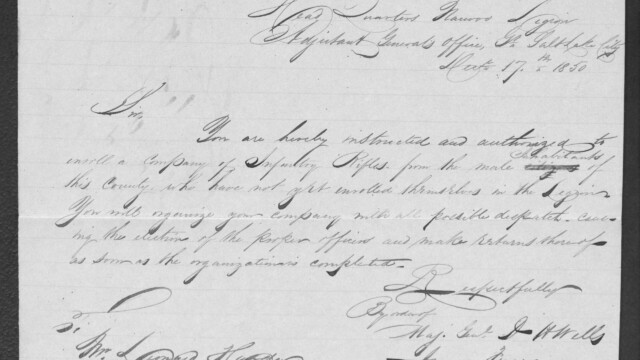 Head Quarters Nauvoo Legion
Adjutant Generals Office, G. Salt Lake City
17th 1850
Sir,
You are hereby instructed and authorized to
enroll a company of Infantry Rifles from the male inhabitants of
this County who have not yet enrolled themselves in the Legion
You will organize your company with all possible despatch caus-
ing the election of the proper officers and make returns thereof
as soon as the organization is completed.
Respectfully
By order of
Maj. Genl. D H Wells
To
Mr.